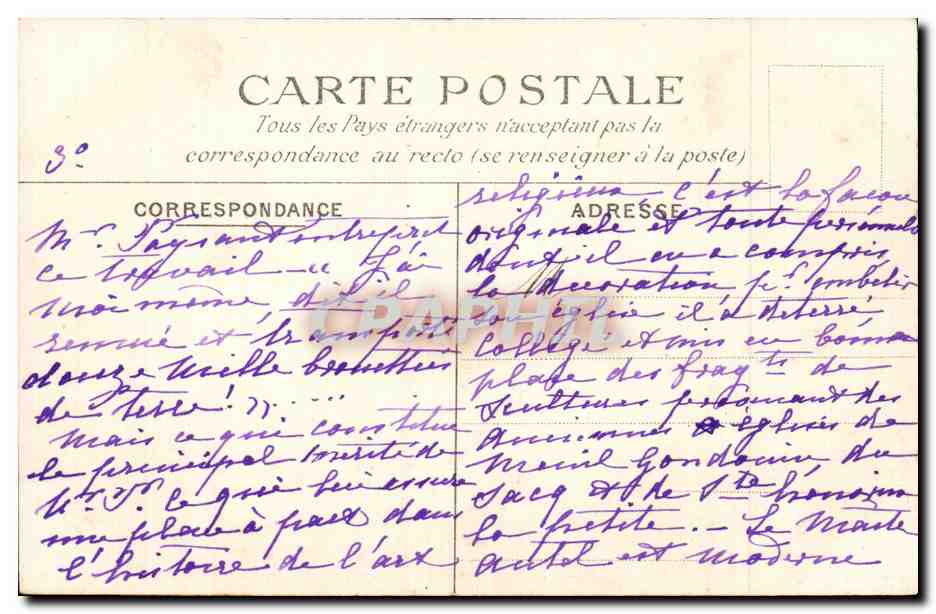 CARTE POSTALE
Tous les Pays étrangers n'acceptant pas la
correspondance au recto (se renseigner à la poste)
3º
CORRESPONDANCE
ADRESSE
Mr. Paysant entreprit
ce travail — "J'ai
moi même dit-il
remué et transporté
douze mille brouettées
de terre! "
Mais ce qui constitue
le principal mérite de
Mr. P. ce qui lui assure
une place à part dans
l'histoire de l'art
religieux c'est la façon
originale et toute personnelle
dont il en a compris
la décoration pr. embellir
son église il a déterré
collegé et mis en bonne
place des fragts de
scultures provenant des
anciennes églises de
Mesnil Gondouin du
Sacq et de Ste honorine
la petite. — Le Maitre
autel est moderne
CPAPHIL